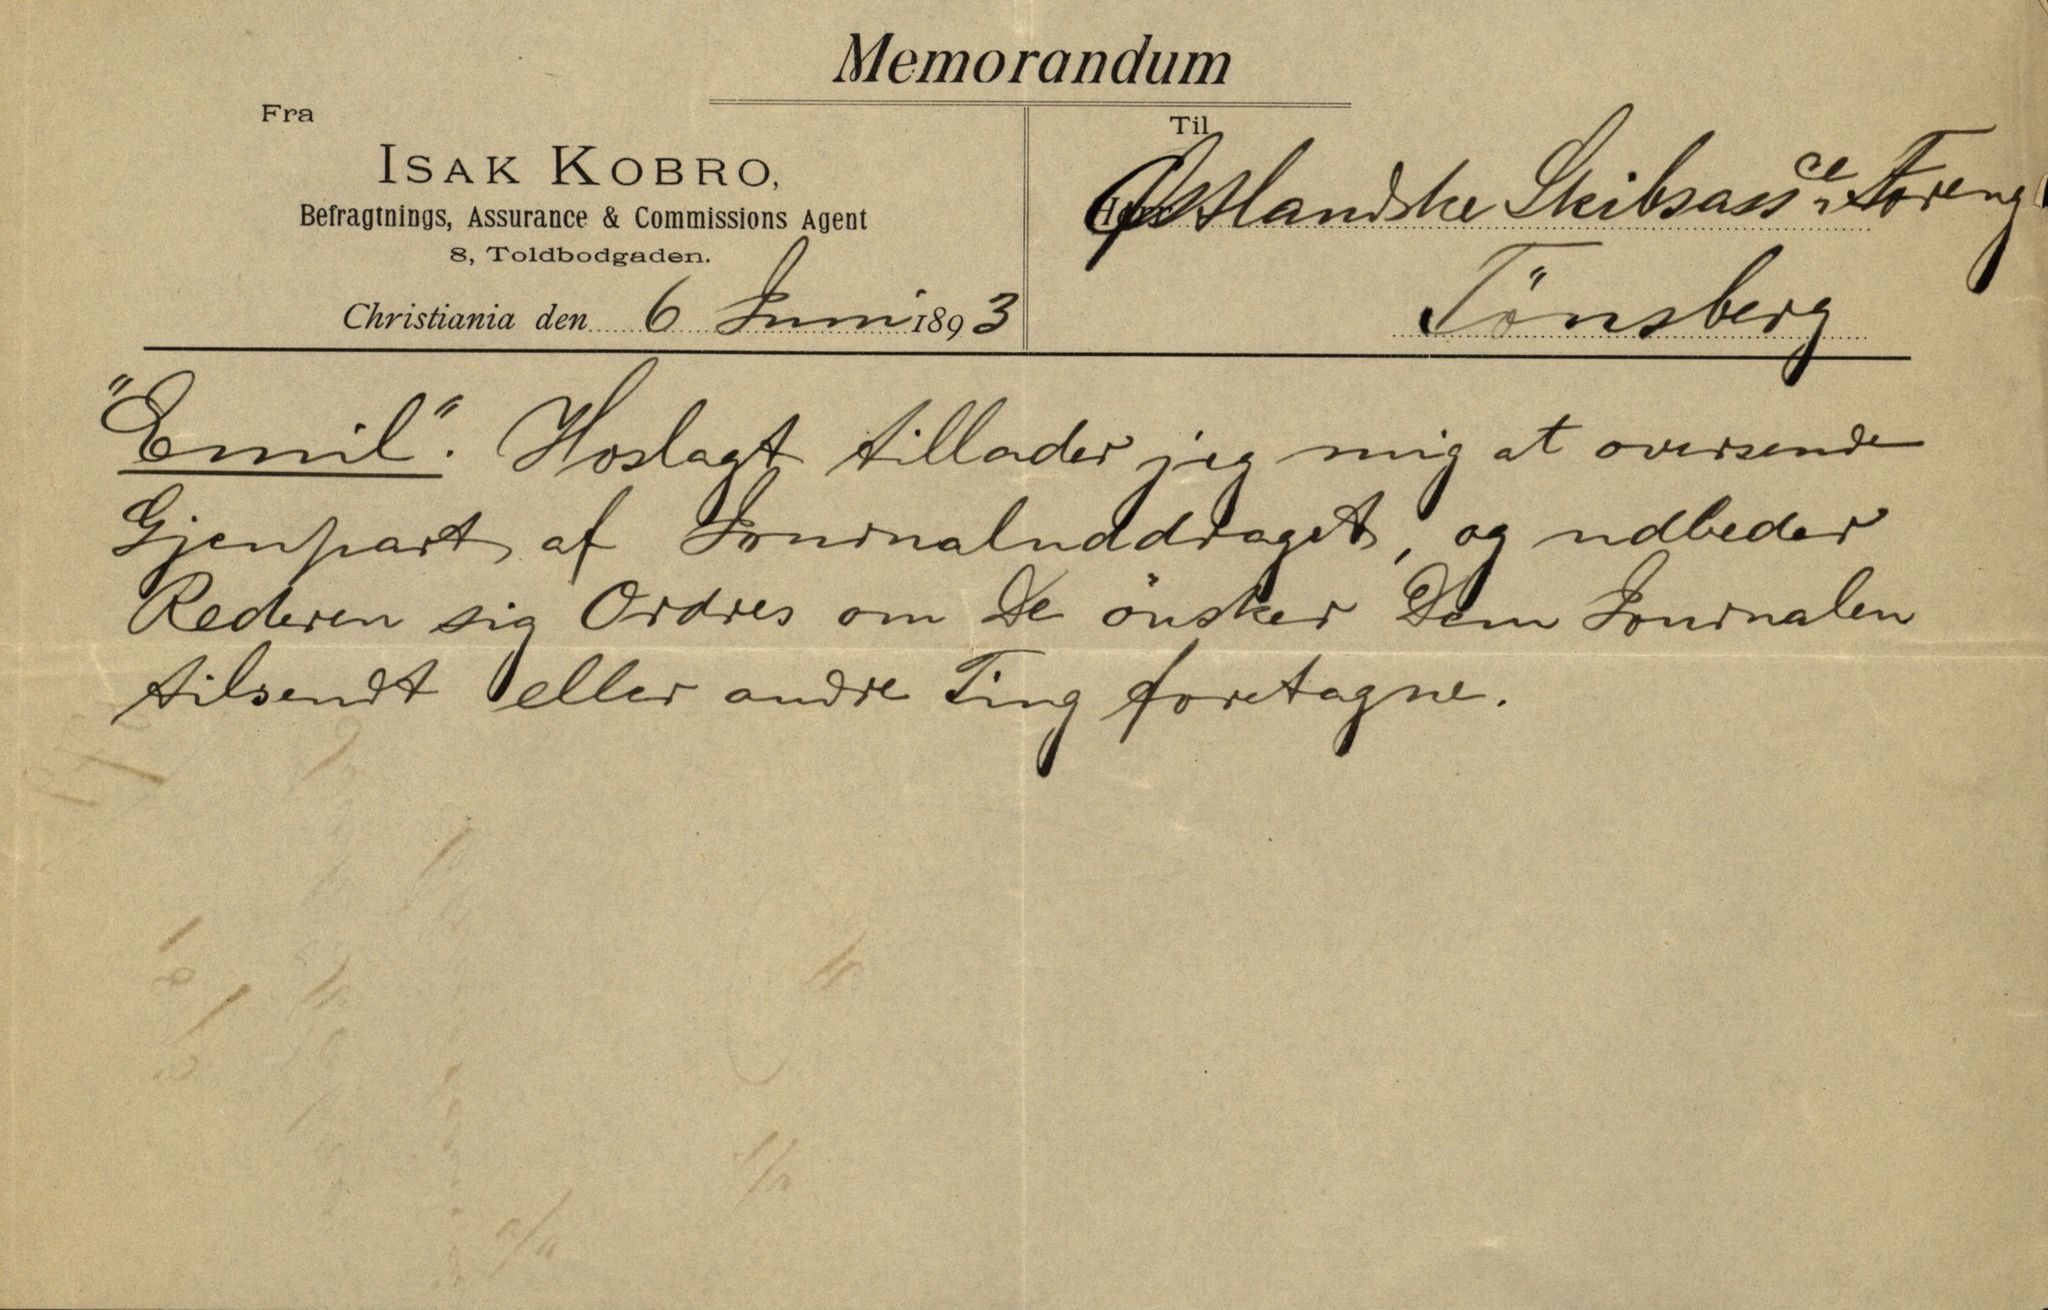 Memorandum
Fra
ISAK KOBRO,
Befragtnings, Assurance & Commissions Agent
8, Toldbodgaden.
Christiania den 6 Juni 1893
Til
Østlandske Skibsassce Foreng
Tönsberg
"Emil". Hoslagt tillader jeg mig at oversende
Gjenpart af Journaluddraget, og udbeder
Rederen sig Ordres om De önsker Dem Journalen
tilsendt eller andre Ting foretagne.